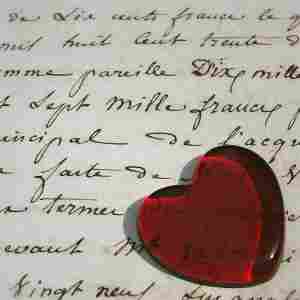 de Six cents francs le
mil huit cent trente d
omme pareille Dix mille
t Sept mille francs
incipal de l'acqu
a faite de
termer
evant Me
Vingt neuf